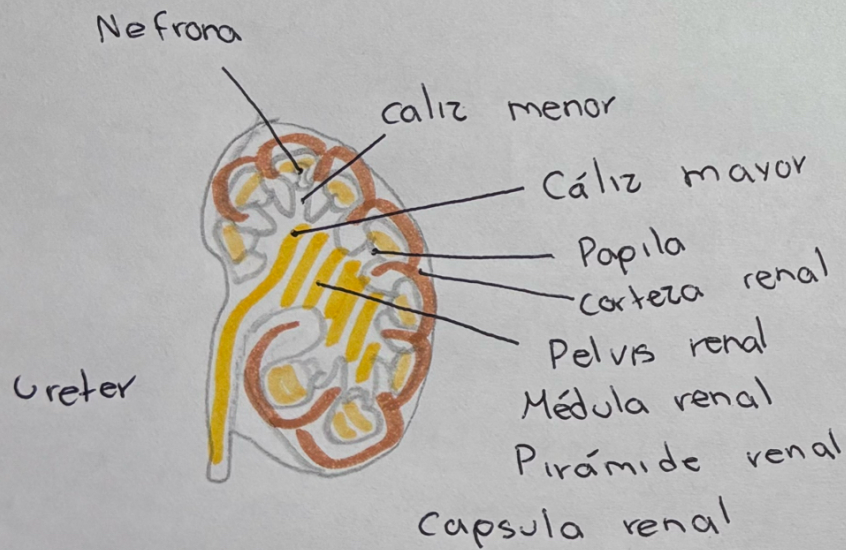 Nefrona
caliz menor
Cáliz mayor
Papila
corteza renal
Pelvis renal
Médula renal
Ureter
Pirámide renal
Capsula renal